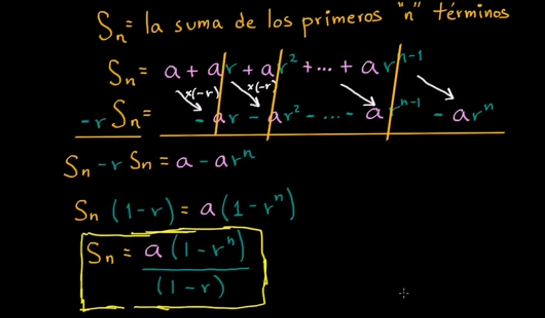 Sₙ = la suma de los primeros "n" términos
Sₙ = a + ar + ar² + ... + arⁿ⁻¹
x(-r) x(-r)
-r Sₙ = - ar - ar² - ... - arⁿ⁻¹ - arⁿ
Sₙ - r Sₙ = a - arⁿ
Sₙ (1-r) = a (1-rⁿ)
Sₙ = a (1-rⁿ)
(1-r)